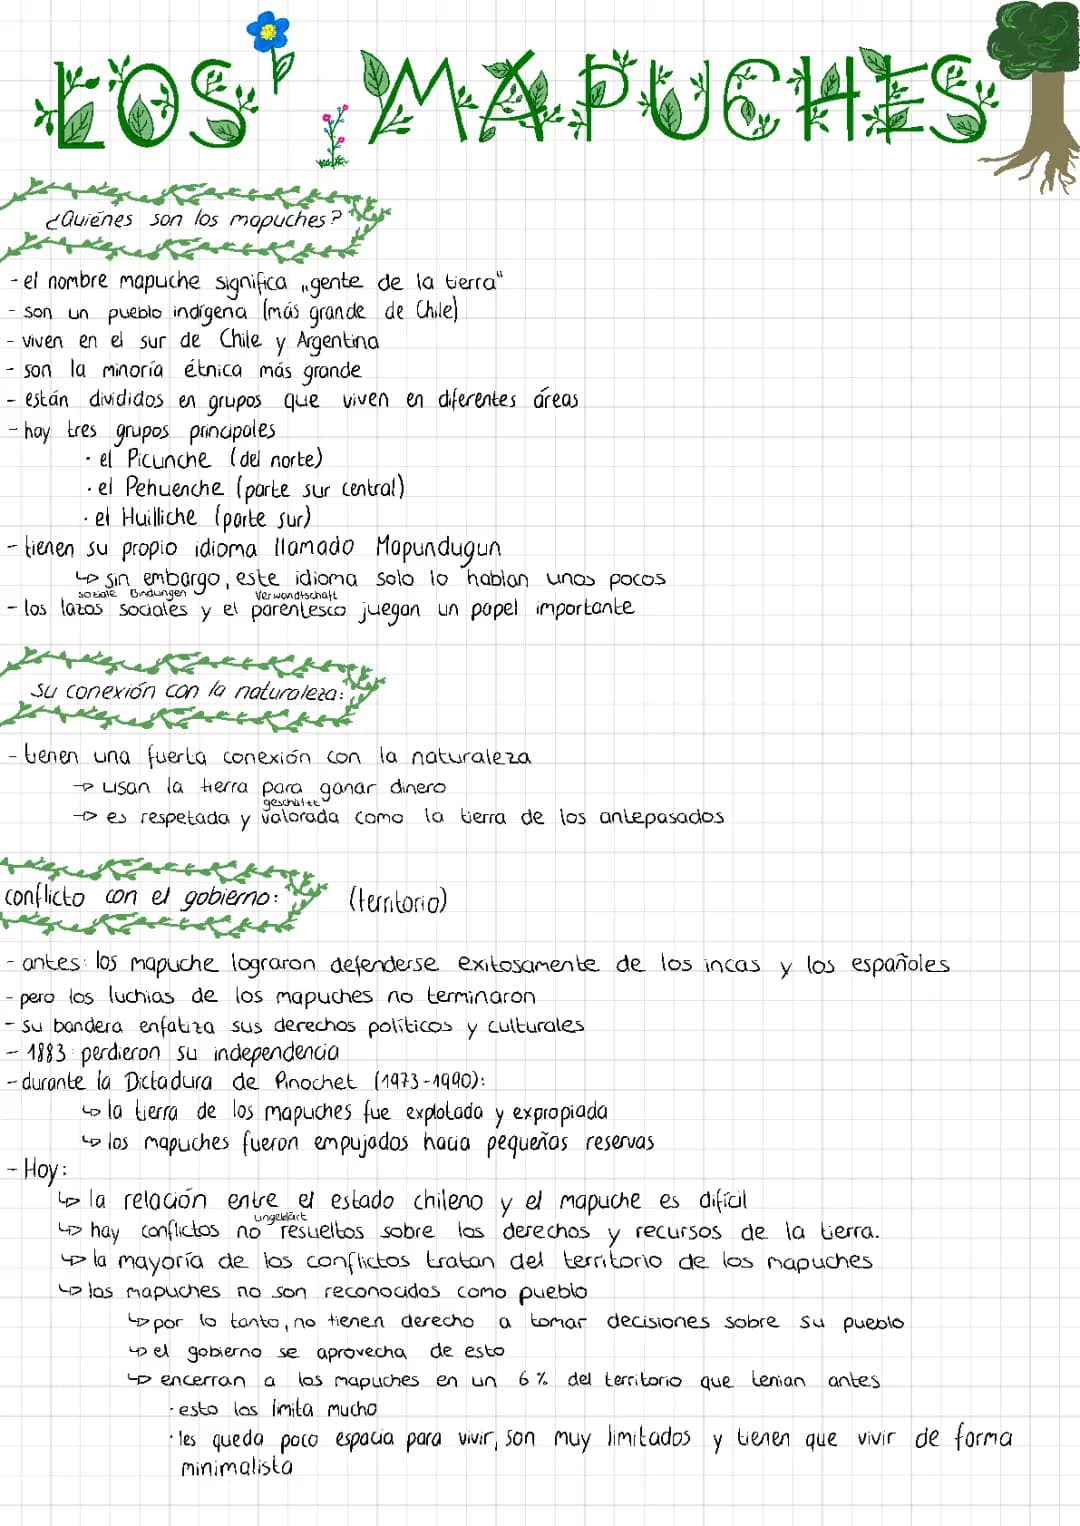 LOS MAPUCHES
¿Quiénes son los mapuches?
- el nombre mapuche significa „gente de la tierra"
- son un pueblo indígena (más grande de Chile)
- viven en el sur de Chile y Argentina
- son la minoría étnica más grande
- están divididos en grupos que viven en diferentes áreas
- hay tres grupos principales
· el Picunche (del norte)
· el Pehuenche (parte sur central)
· el Huilliche (parte sur)
- tienen su propio idioma llamado Mapundugun
↳ sin embargo, este idioma solo lo hablan unos pocos
soziale Bindungen Verwandtschaft
- los lazos sociales y el parentesco juegan un papel importante
Su conexión con la naturaleza:
- tienen una fuerta conexión con la naturaleza
→ usan la tierra para ganar dinero
geschätzt
→ es respetada y valorada como la tierra de los antepasados
conflicto con el gobierno: (territorio)
- antes: los mapuche lograron defenderse exitosamente de los incas y los españoles
- pero los luchias de los mapuches no terminaron
- su bandera enfatiza sus derechos políticos y culturales
- 1883 perdieron su independencia
- durante la Dictadura de Pinochet (1973-1990):
↳ la tierra de los mapuches fue explotada y expropiada
↳ los mapuches fueron empujados hacia pequeñas reservas
- Hoy:
↳ la relación entre el estado chileno y el mapuche es difícil
ungeklärt
↳ hay conflictos no resueltos sobre los derechos y recursos de la tierra.
↳ la mayoría de los conflictos tratan del territorio de los mapuches
↳ los mapuches no son reconocidos como pueblo
↳ por lo tanto, no tienen derecho a tomar decisiones sobre su pueblo
↳ el gobierno se aprovecha de esto
↳ encerran a los mapuches en un 6 % del territorio que tenian antes
· esto los limita mucho
· les queda poco espacia para vivir, son muy limitados y tienen que vivir de forma
minimalista